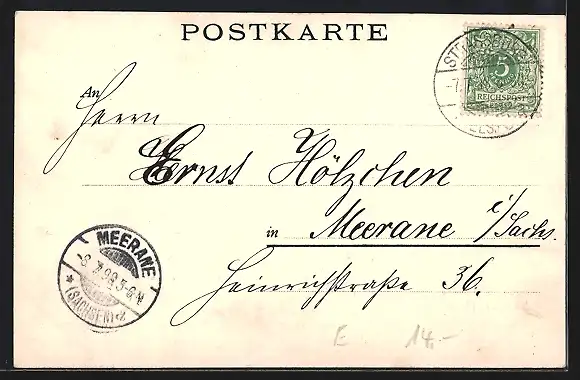 POSTKARTE
5
REICHSPOST
An
Herrn
Ernst Hölzchen
in Meerane i/Sachs.
Heinrichstraße 36.
MEERANE
(SACHSEN)
E 14.-